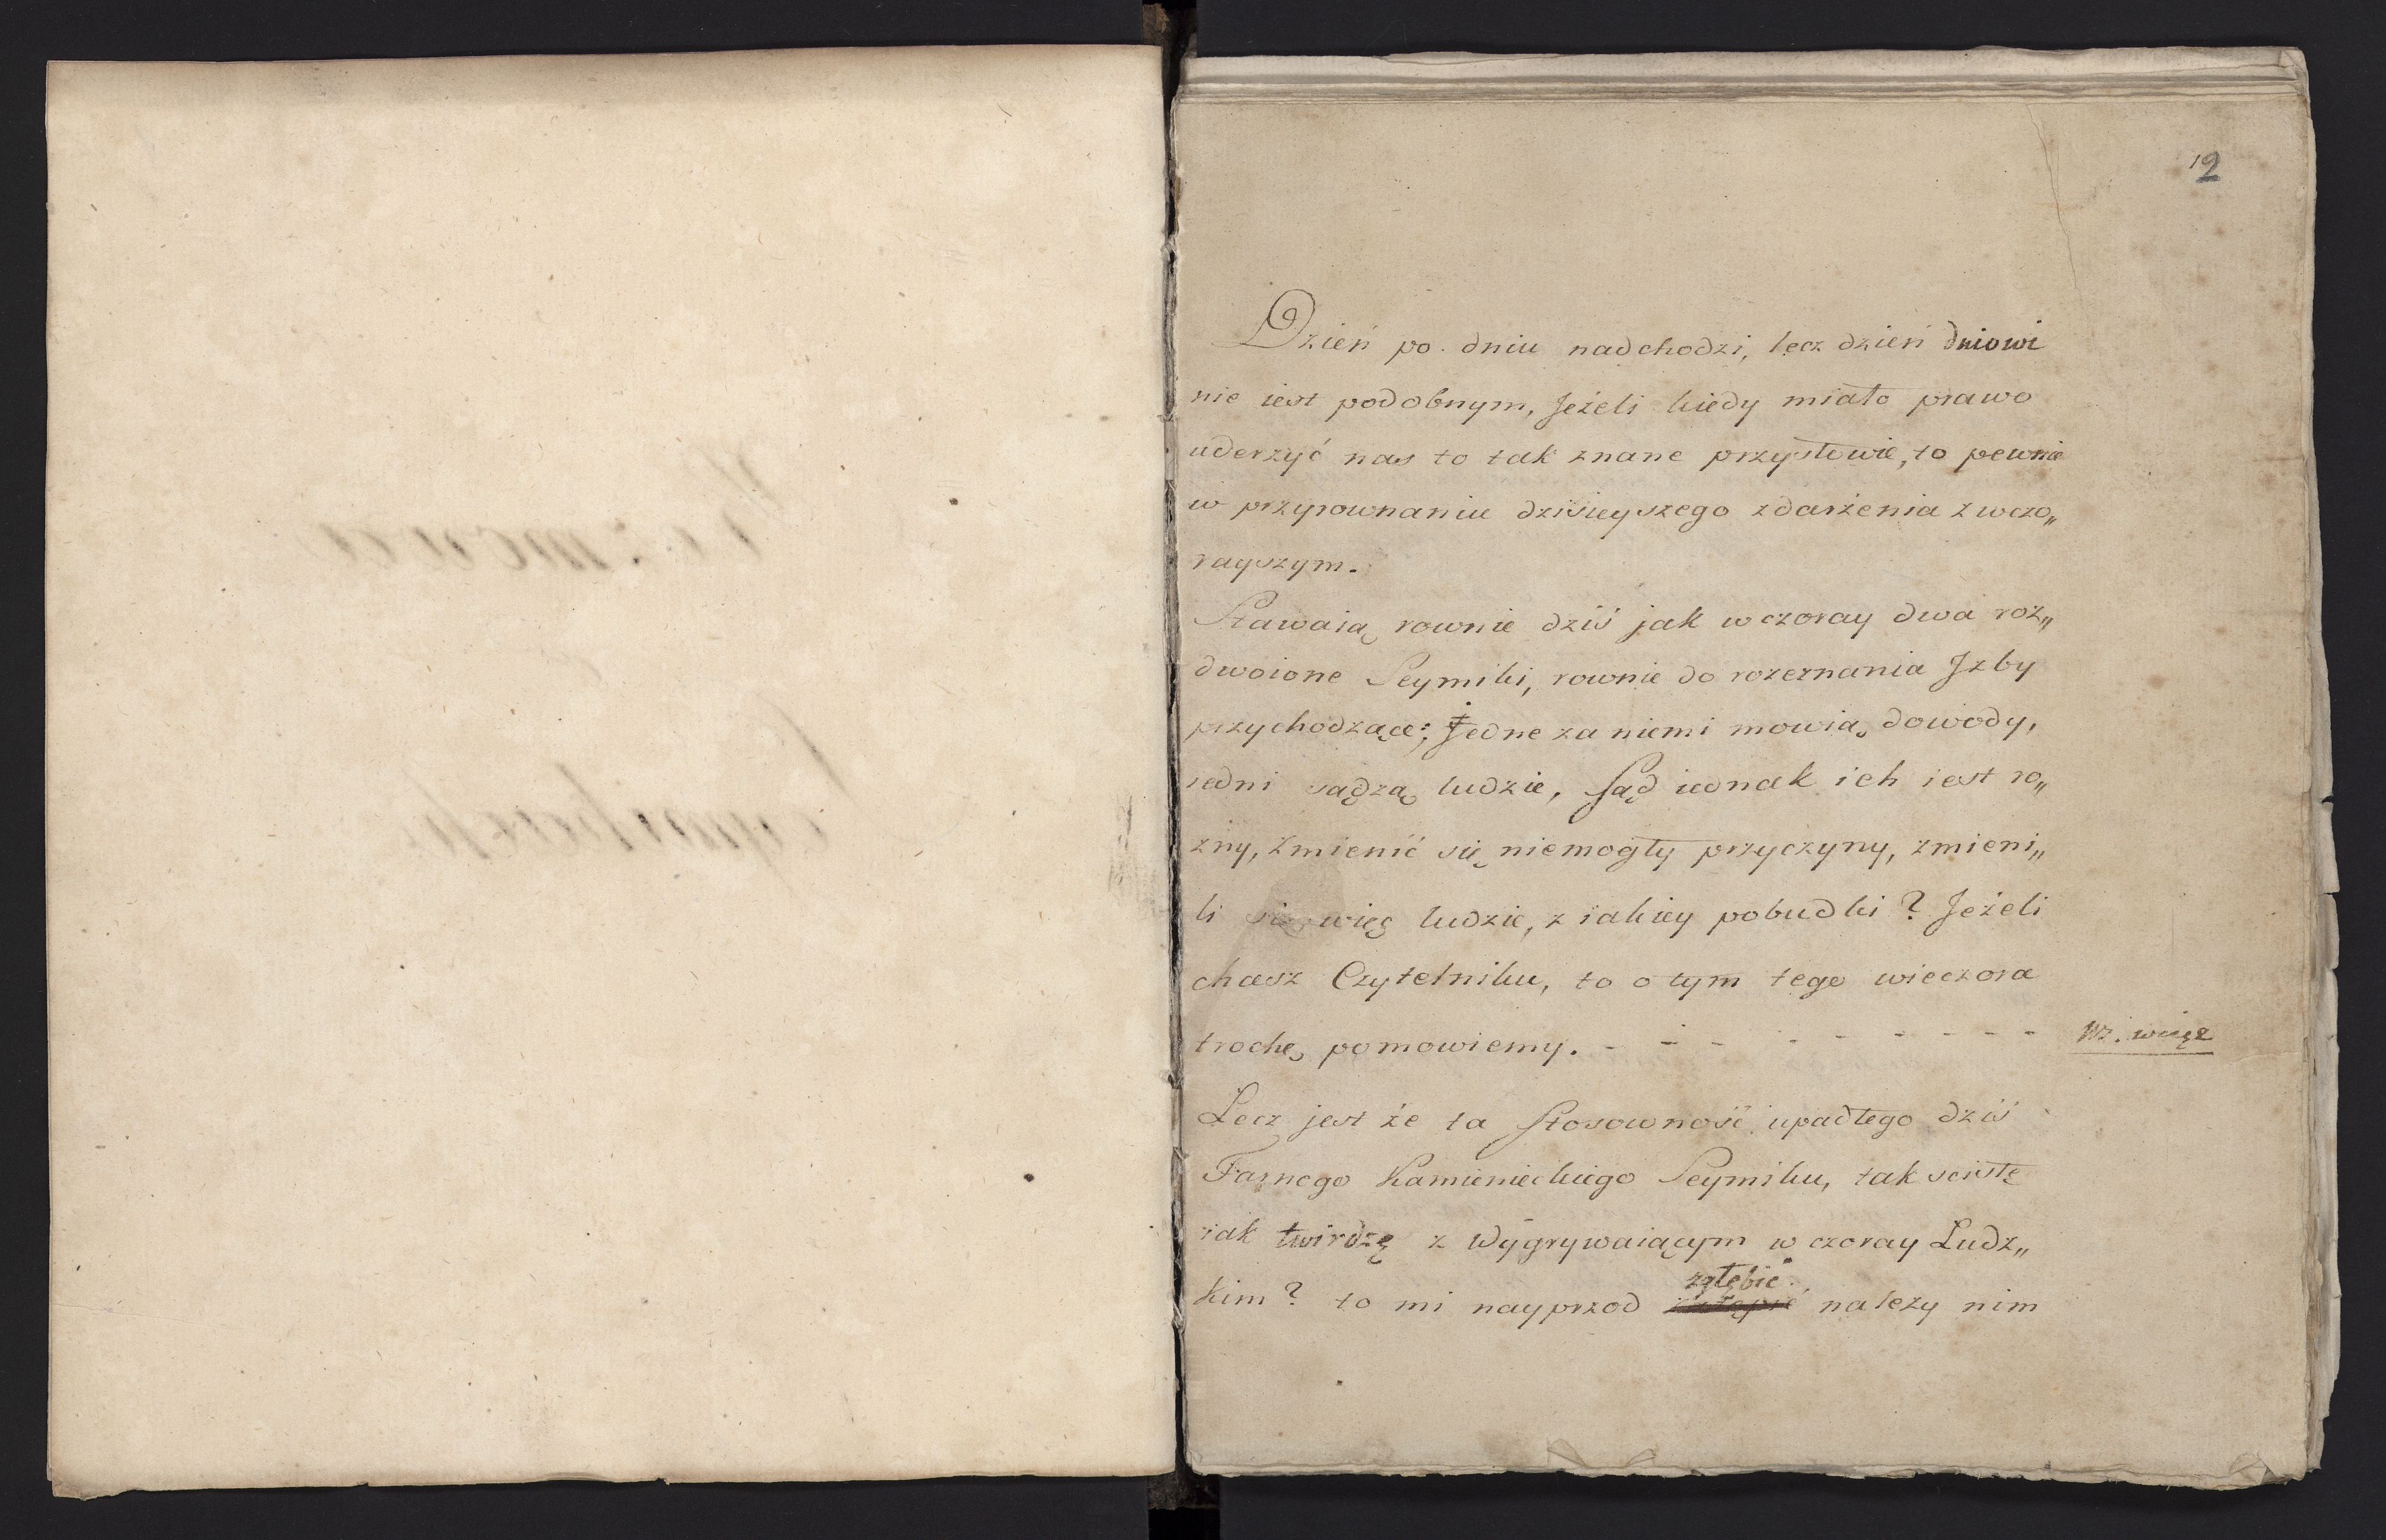 12
Dzień po dniu nadchodzi, lecz dzień dniowi
nie iest podobnym, Jeżeli kiedy miało prawo
uderzyć nas to tak znane przysłowie, to pewnie
w przyrownaniu dzisieyszego zdarżenia z wczo„
rayszym.
Stawaią rownie dziś jak wczoray dwa roz„
dwoione Seymiki, rownie do rozeznania Jzby
przychodzące; jedne za niemi mowią dowody,
iedni sądzą ludzie, sąd iednak ich iest ro„
zny, zmienić się niemogły przyczyny, zmieni„
li się więc ludzie, z iakiey pobudki? Jeżeli
chcesz Czytelniku, to o tym tego wieczora
trochę pomowiemy. - - - - - - - - - Ws. więcz
Lecz jest że ta stosowność upadłego dziś
Farnego Kamienieckiego Seymiku, tak scisłę
iak twirdzę z Wygrywaiącym wczoray Ludz„
zgłębić
kim? to mi nayprzod należy nim